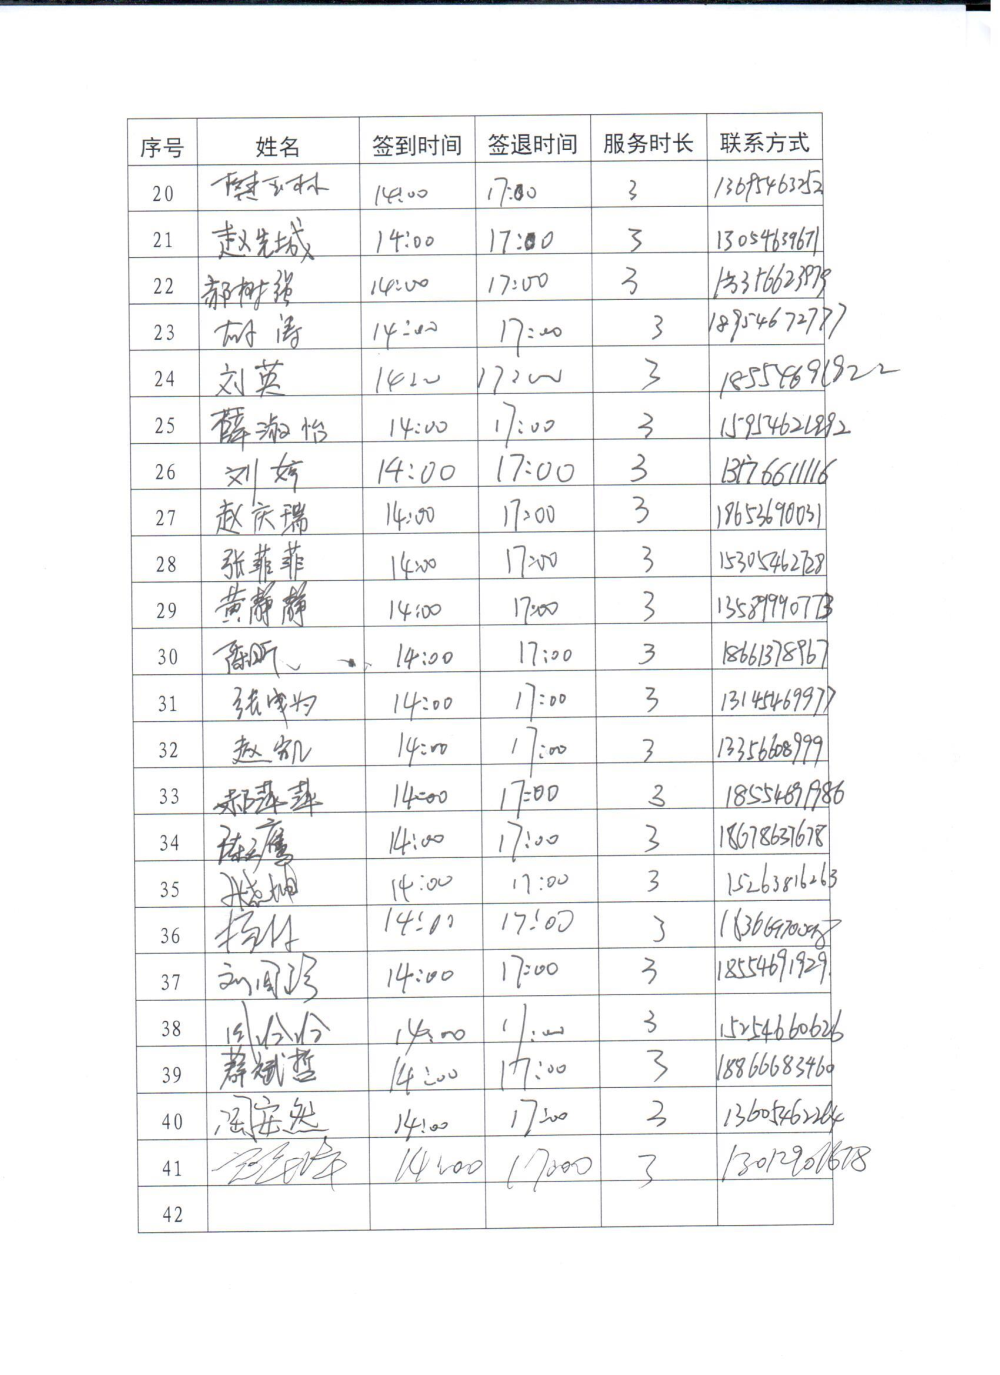 序号 姓名 签到时间 签退时间 服务时长 联系方式
20 樊玉林 14:00 17:00 3 13695463252
21 赵先城 14:00 17:00 3 13054639671
22 郝树强 14:00 17:00 3 13356623979
23 胡涛 14:00 17:00 3 18954672777
24 刘英 14:00 17:00 3 18554691922
25 薛淑怡 14:00 17:00 3
26 刘婷 14:00 17:00 3
27 赵庆瑞 14:00 17:00 3 18653690031
28 张菲菲 14:00 17:00 3 15305462728
29 黄静静 14:00 17:00 3 13589990773
30 陈昕 14:00 17:00 3 18661378967
31 张成为 14:00 17:00 3 13145469977
32 赵凯 14:00 17:00 3 13356608999
33 郝萍萍 14:00 17:00 3 18554691986
34 14:00 17:00 3 18678637678
35 14:00 17:00 3 15263816263
36 14:00 17:00 3
37 刘国珍 14:00 17:00 3 18554691929
38 14:00 17:00 3 15254660626
39 薛斌哲 14:00 17:00 3 18866683460
40 14:00 17:00 3 13605462264
41 14:00 17:00 3
42